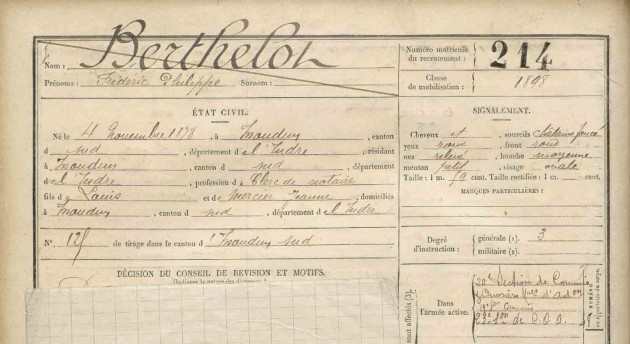 Nom : Berthelot
Prénoms : Frédéric Philippe Surnom :
Numéro matricule du recrutement : 214
Classe de mobilisation : 1898
ÉTAT CIVIL.
Né le 4 novembre 1878, à Issoudun, canton
d sud, département de l'Indre, résidant
à Issoudun, canton d sud, département
de l'Indre, profession de Clerc de notaire
fils de Louis et de Mercier Jeanne, domiciliés
à Issoudun, canton d sud, département de l'Indre
N° de tirage dans le canton d'Issoudun sud
DÉCISION DU CONSEIL DE REVISION ET MOTIFS.
SIGNALEMENT.
Cheveux et sourcils châtain foncé
yeux roux, front rond
nez relevé, bouche moyenne
menton petit, visage ovale
Taille : 1 m. cent. Taille rectifiée : 1 m. cent.
MARQUES PARTICULIÈRES :
Degré d'instruction : générale (1). 3
militaire (2).
Dans l'armée active.
20e Section de Commis
et Ouvriers d'Ad
de C.O.A.